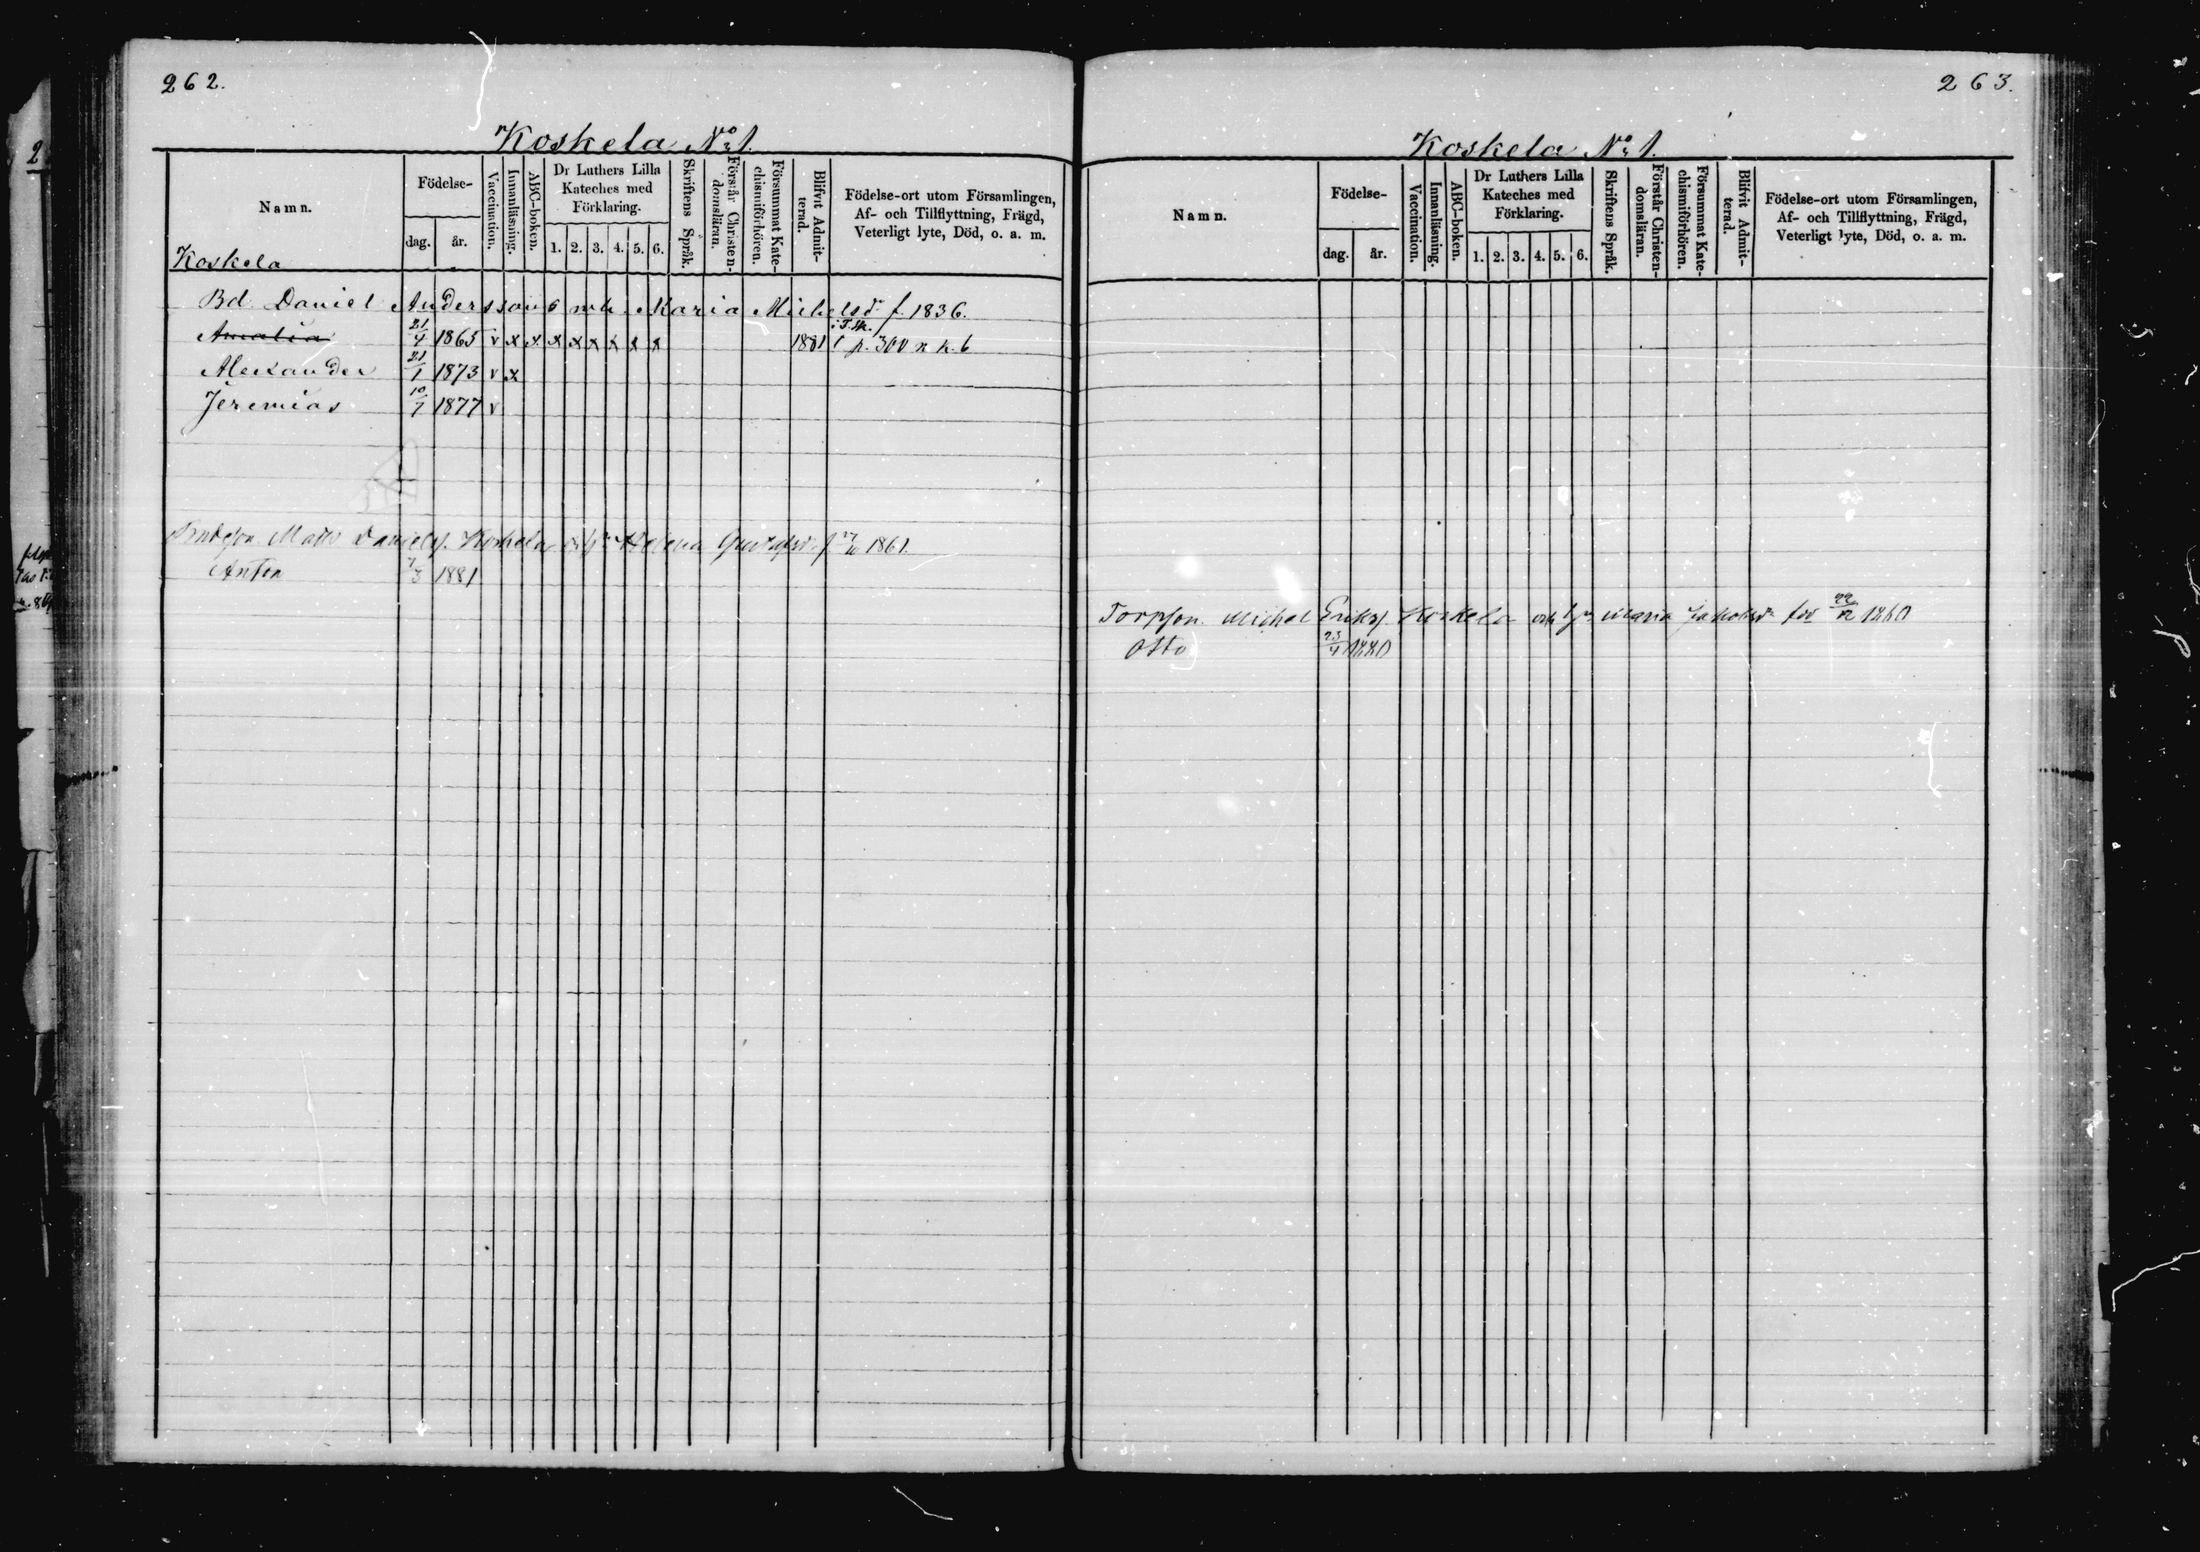 262.
Koskela No 1.
Namn.
Födelse-
dag.
år.
Vaccination.
Innanläsning.
ABC-boken.
Dr Luthers Lilla
Kateches med
Förklaring.
1. 2. 3. 4. 5. 6.
Skriftens Språk.
Förstår Christen-
domsläran.
Försummat Kate-
chismiförhören.
Blifvit Admit-
terad.
Födelse-ort utom Församlingen,
Af- och Tillflyttning, Frägd,
Veterligt lyte, Död, o. a. m.
Koskela
Bd. Daniel Anderssons o Maria Michelsdr f. 1836.
Amalia 21/4 1865 v x x x x x x x x 1881 p. 300 n k. 6
Alexander 21/1 1873 v x
Jeremias 10/7 1877 v
Matts Daniels. Koskela Helena Gustafsd. f 1861.
Anton 7/3 1881
263.
Koskela No 1.
Namn.
Födelse-
dag.
år.
Vaccination.
Innanläsning.
ABC-boken.
Dr Luthers Lilla
Kateches med
Förklaring.
1. 2. 3. 4. 5. 6.
Skriftens Språk.
Förstår Christen-
domsläran.
Försummat Kate-
chismiförhören.
Blifvit Admit-
terad.
Födelse-ort utom Församlingen,
Af- och Tillflyttning, Frägd,
Veterligt lyte, Död, o. a. m.
Torpson Michel Eriks. Koskela och hu Maria Jakobsdr född 22/12 1860
Otto 23/4 1880